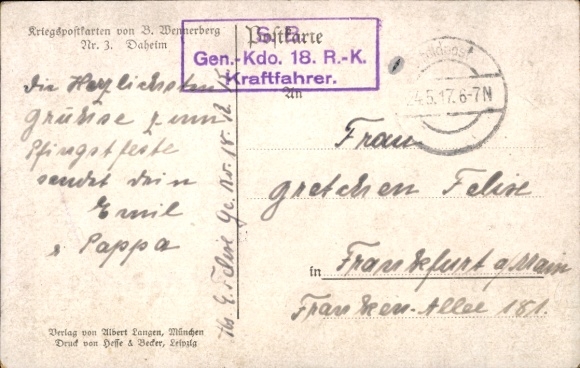 Kriegspostkarten von B. Wennerberg
Nr. 3. Daheim
Postkarte
S. B.
Gen.-Kdo. 18. R.-K.
Kraftfahrer.
Feldpost
24.5.17. 6-7N
An
die Herzlichsten
Grühse zum
Pfingstfeste
sendet dein
Emil
Pappa
E. Felise
18.
Frau
Gretchen Felise
in Frankfurt a/Main
Franken-Allee 181.
Verlag von Albert Langen, München
Druck von Hesse & Becker, Leipzig